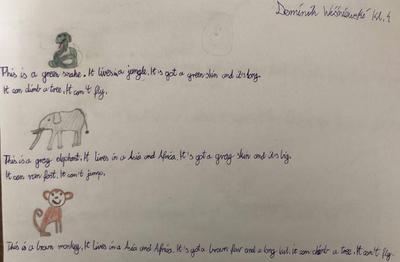 Dominik Wiśniewski Kl. 4
This is a green snake. It lives in a jungle. It is got a green skin and its long.
It can climb a tree. It can't fly.
This is a grey elephant. It lives in a Asia and Africa. It's got a grey skin and its big.
It can run fast. It can't jump.
This is a brown monkey. It lives in a Asia and Africa. It's got a brown fur and a long tail. It can climb a tree. It can't fly.